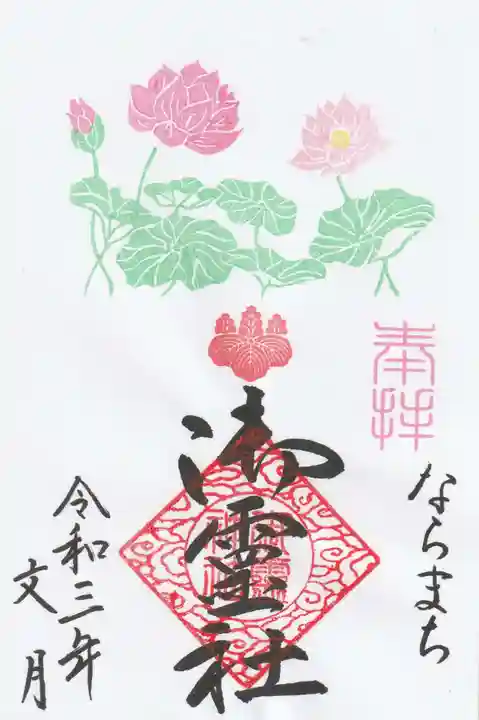 奉拝
ならまち
御霊社
令和三年
文月